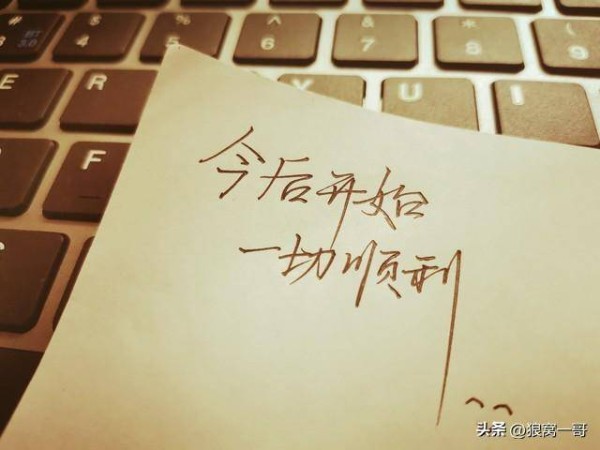 BT
3.0
$
4
%
5
^
6
&
7
*
8
(
9
E
R
Y
U
I
F
今后开始
一切顺利
^^
头条 @狼窝一哥